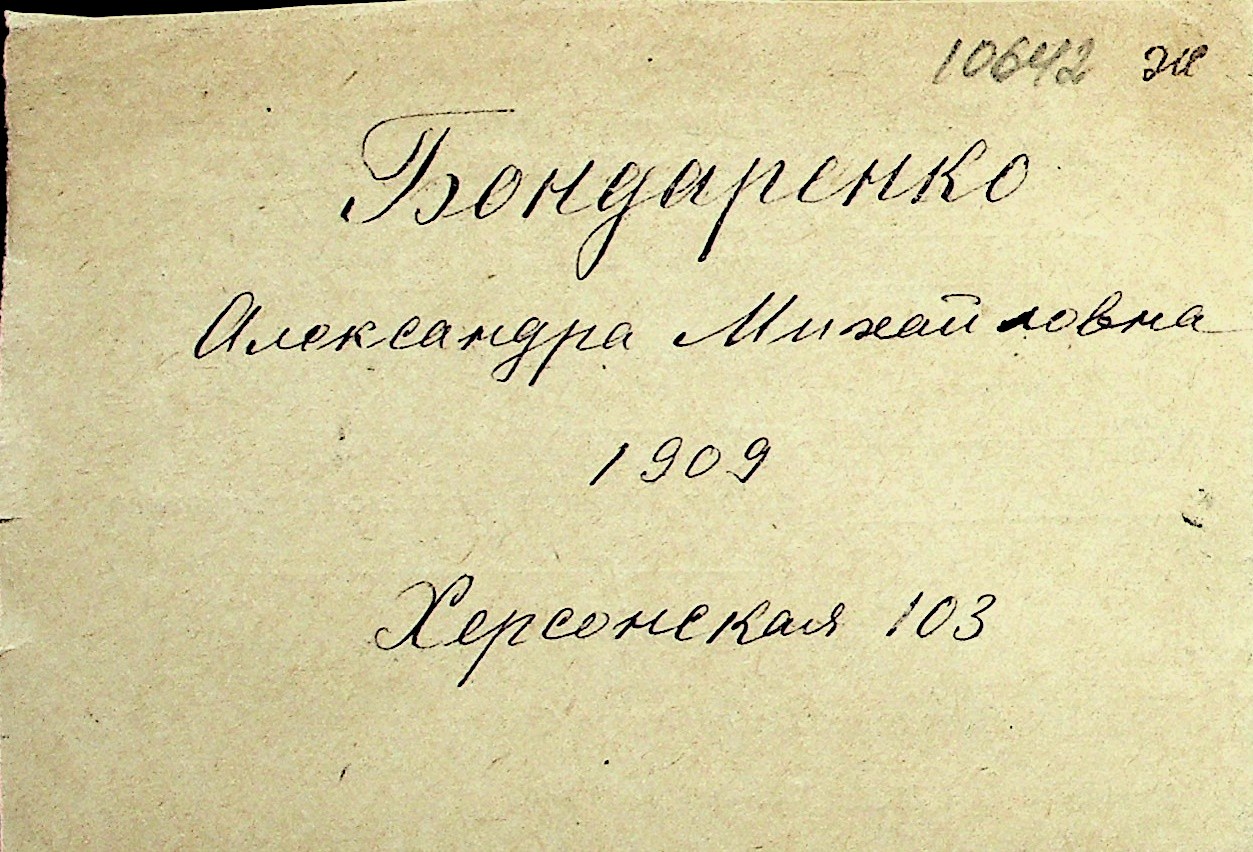 10642 эк
Бондаренко
Александра Михайловна
1909
Херсонская 103